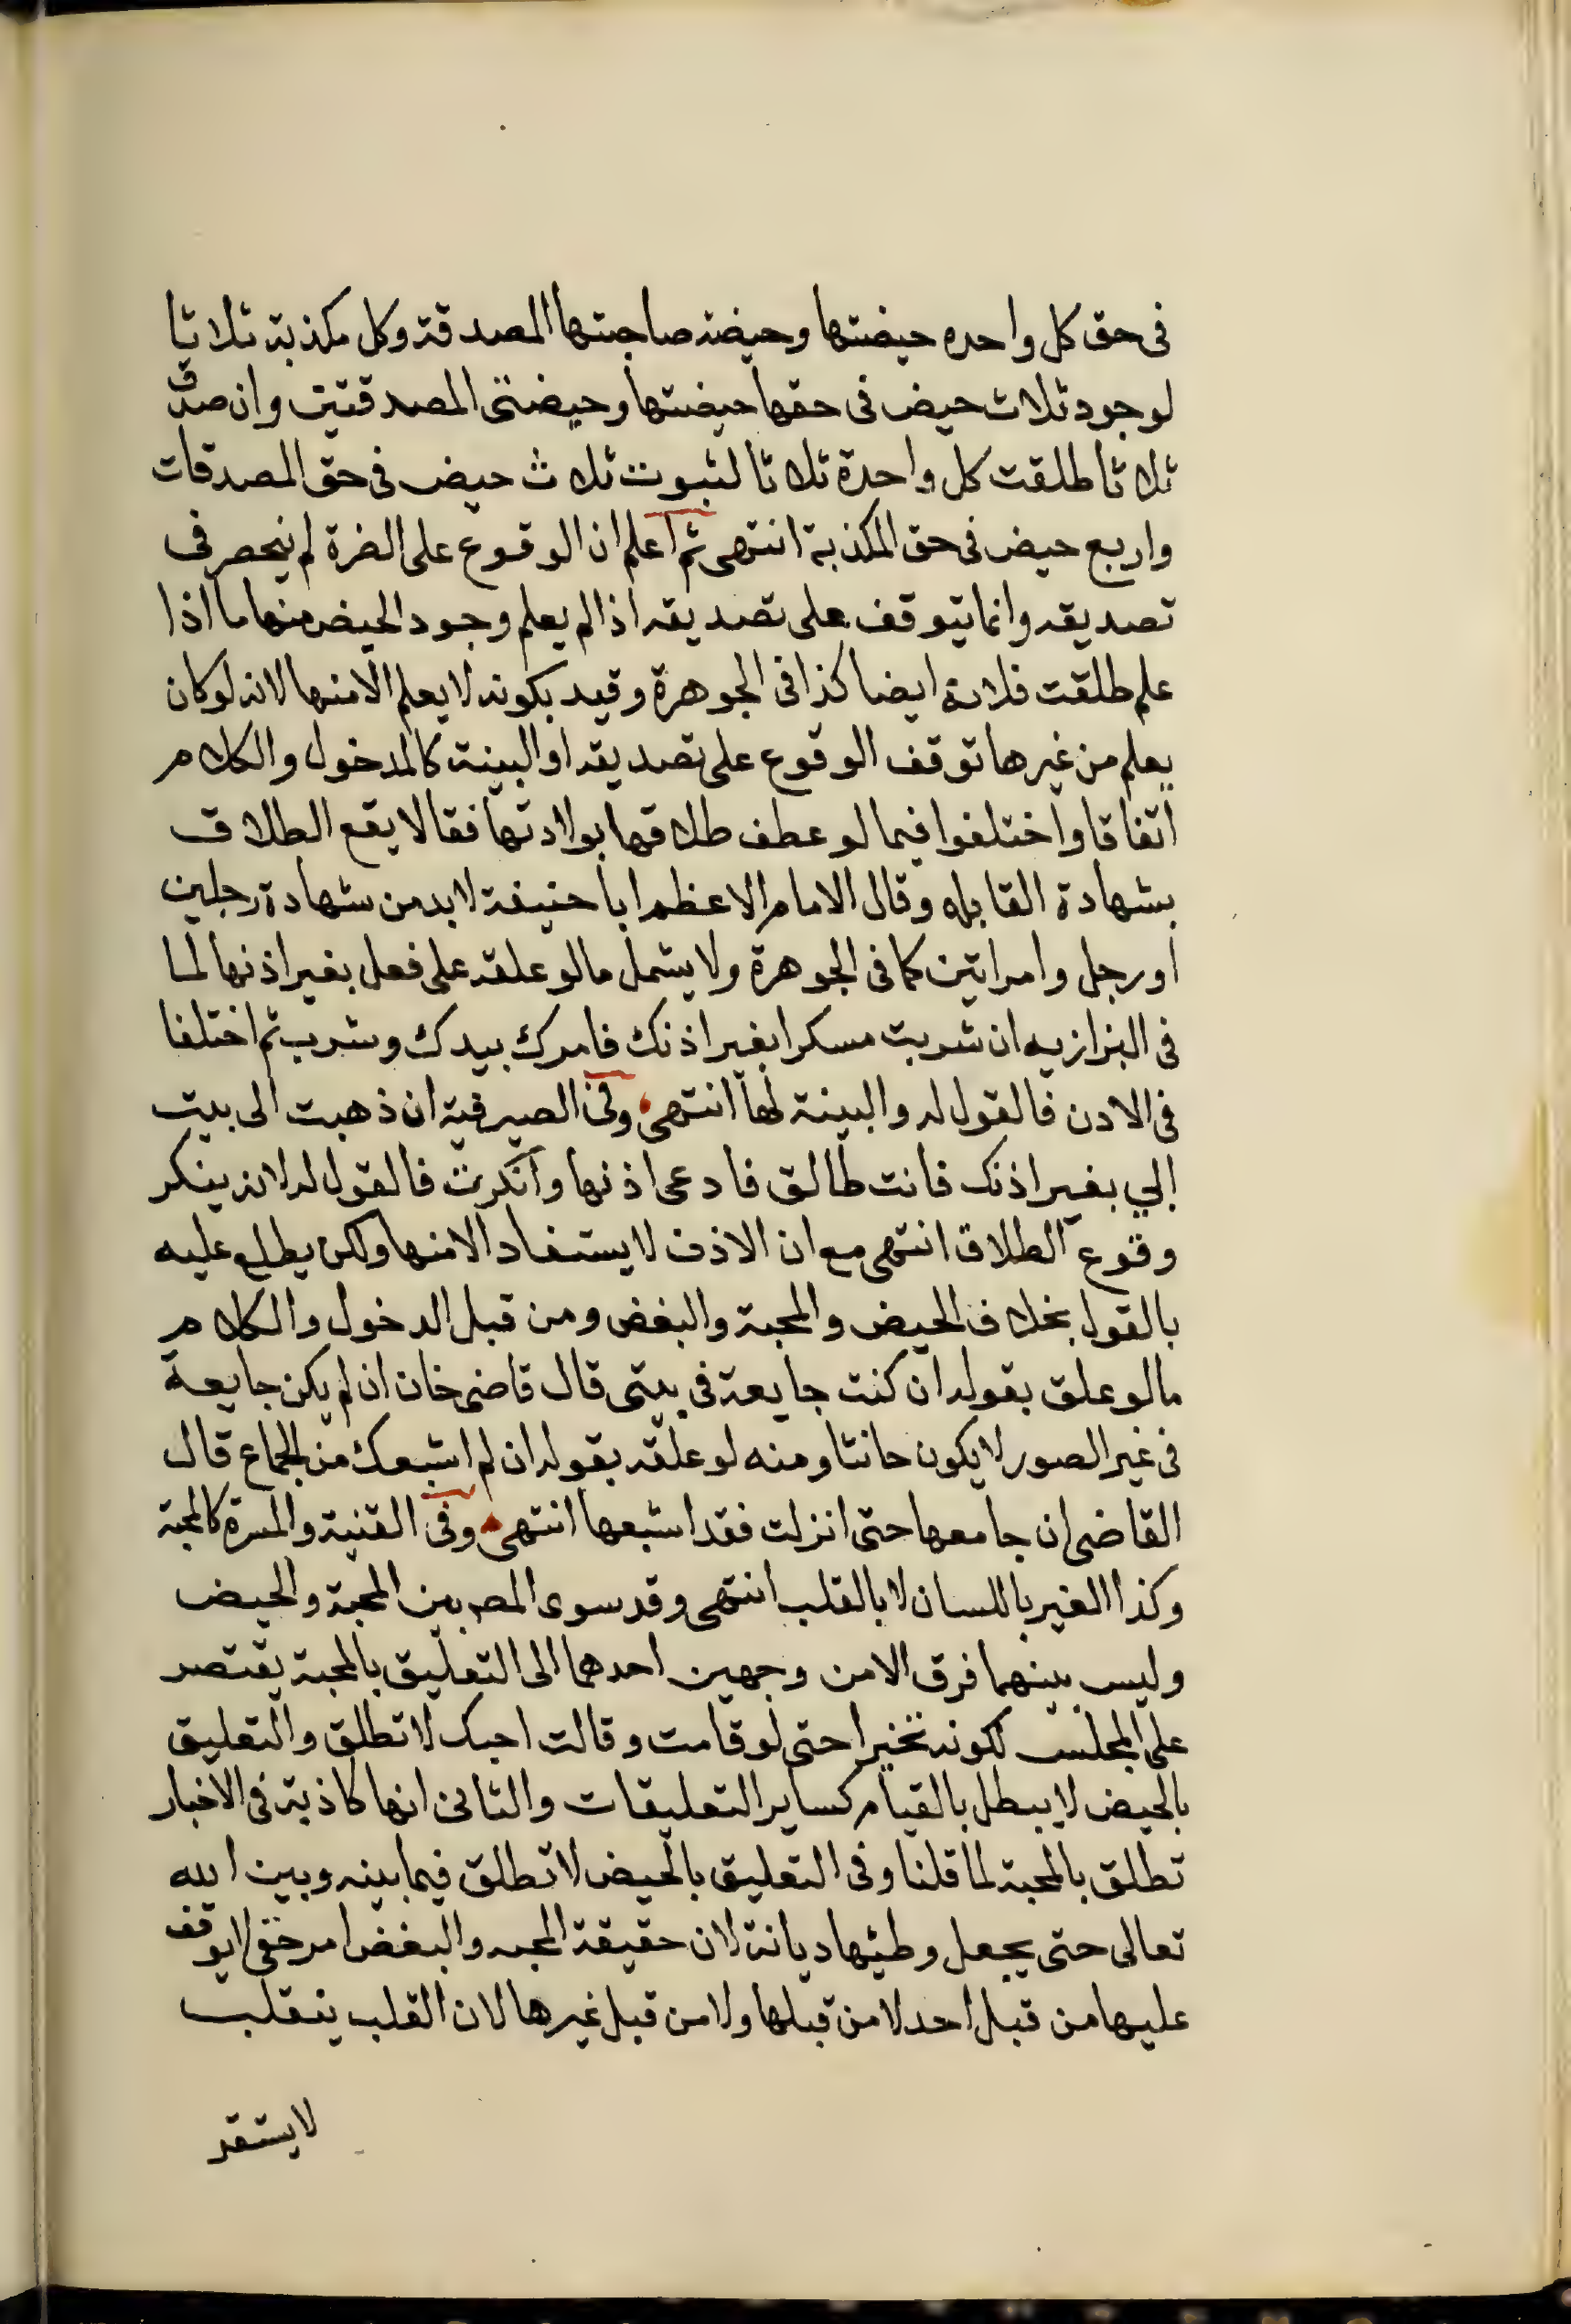 فى حق كل واحده حيضتها وحيضة صاحبتها المصدقة وكل مكذبة ثلاثا
لوجود ثلاث حيض فى حقها حيضتها وحيضتى المصدقتين وان صدق
ثلاثا طلقت كل واحدة ثلاثا لثبوت ثلاث حيض فى حق المصدقات
واربع حيض فى حق المكذبة انتهى ثم اعلم ان الوقوع على الضرة لم ينحصر فى
تصديقه وانما يتوقف على تصديقه اذا لم يعلم وجود الحيض منها ما اذا
علم طلقت فلانة ايضا كذا فى الجوهرة وقيد بكونه لا يعلم الا منها لانه لو كان
يعلم من غيرها توقف الوقوع على تصديقه او البينة كالدخول والكلام
اتفاقا واختلفوا فيما لو عطف طلاقها بولادتها فقالا يقع الطلاق
بشهادة القابله وقال الامام الاعظم ابا حنيفة لا بد من شهادة رجلين
او رجل وامراتين كما فى الجوهرة ولا يشمل ما لو علقه على فعل بغير اذنها لما
فى البزازيه ان شربت مسكرا بغير اذنك فامرك بيدك وشرب ثم اختلفا
فى الادن فالقول له والبينة لها انتهى وفى الصيرفية ان ذهبت الى بيت
ابي بغير اذنك فانت طالق فادعى اذنها وانكرت فالقول له لانه ينكر
وقوع الطلاق انتهى مع ان الاذن لا يستفاد الا منها ولكن يطلع عليه
بالقول بخلاف الحيض والمحبة والبغض ومن قبل الدخول والكلام
ما لو علق بقوله ان كنت جايعة فى بيتى قال قاضى خان ان لم يكن جايعة
فى غير الصور لا يكون حانثا ومنه لو علقه بقوله ان لم اشبعك من الجماع قال
القاضى ان جامعها حتى انزلت فقد اشبعها انتهى وفى القنية والمسرة كالمحبة
وكذا الغير باللسان لا بالقلب انتهى وقد سوى المص بين المحبة والحيض
وليس بينهما فرق الا من وجهين احدهما الى التعليق بالمحبة يقتصر
على المجلس لكونه تخيرا حتى لو قامت وقالت احبك لا تطلق والتعليق
بالحيض لا يبطل بالقيام كساير التعليقات والثانى انها كاذبة فى الاخبار
تطلق بالمحبة لما قلنا وفى التعليق بالحيض لا تطلق فيما بينه وبين الله
تعالى حتى يجعل وطيئها ديانة لان حقيقة المحبه والبغض امر خفى لا يوقف
عليها من قبل احد لا من قبلها ولا من قبل غيرها لان القلب ينقلب
لا يستقر